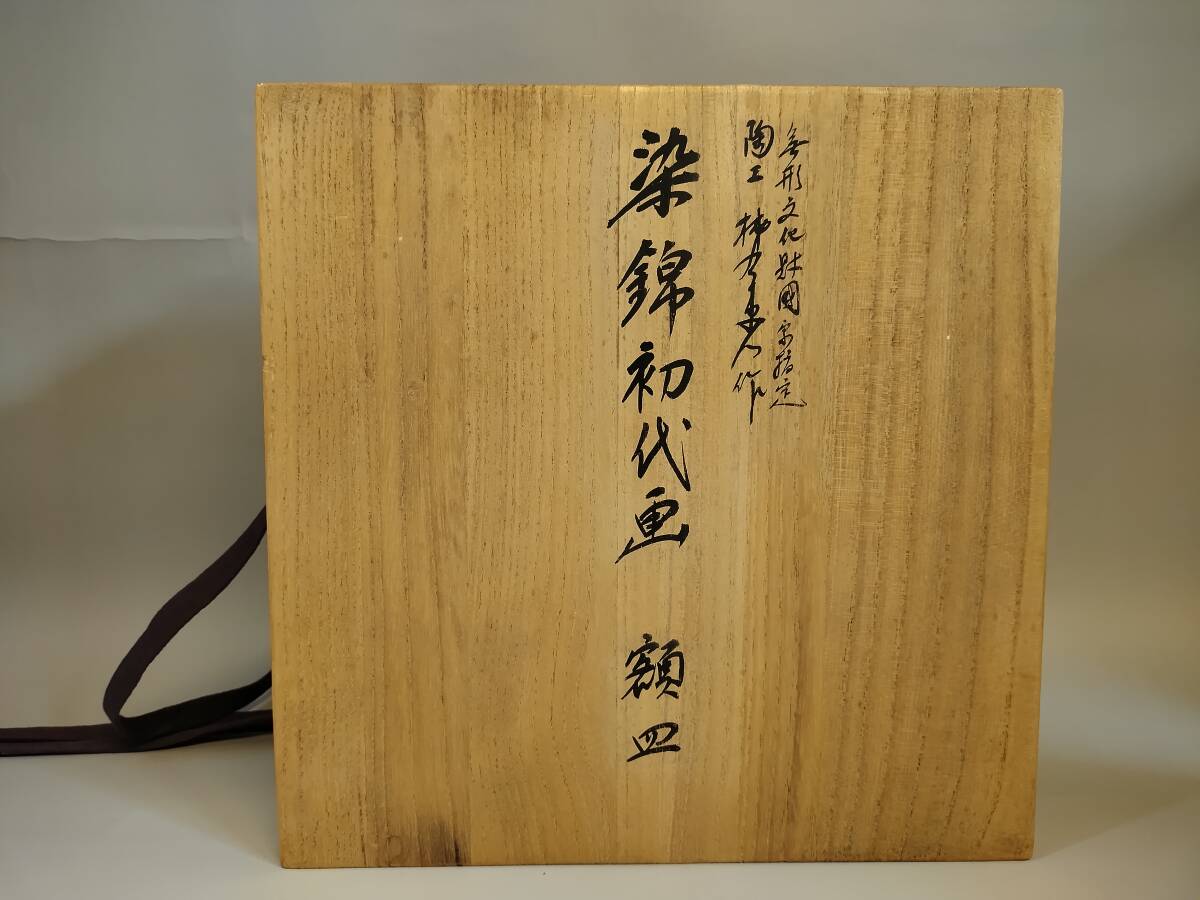 無形文化財國家指定
陶工 柿右エ門作
染錦初代画 額皿